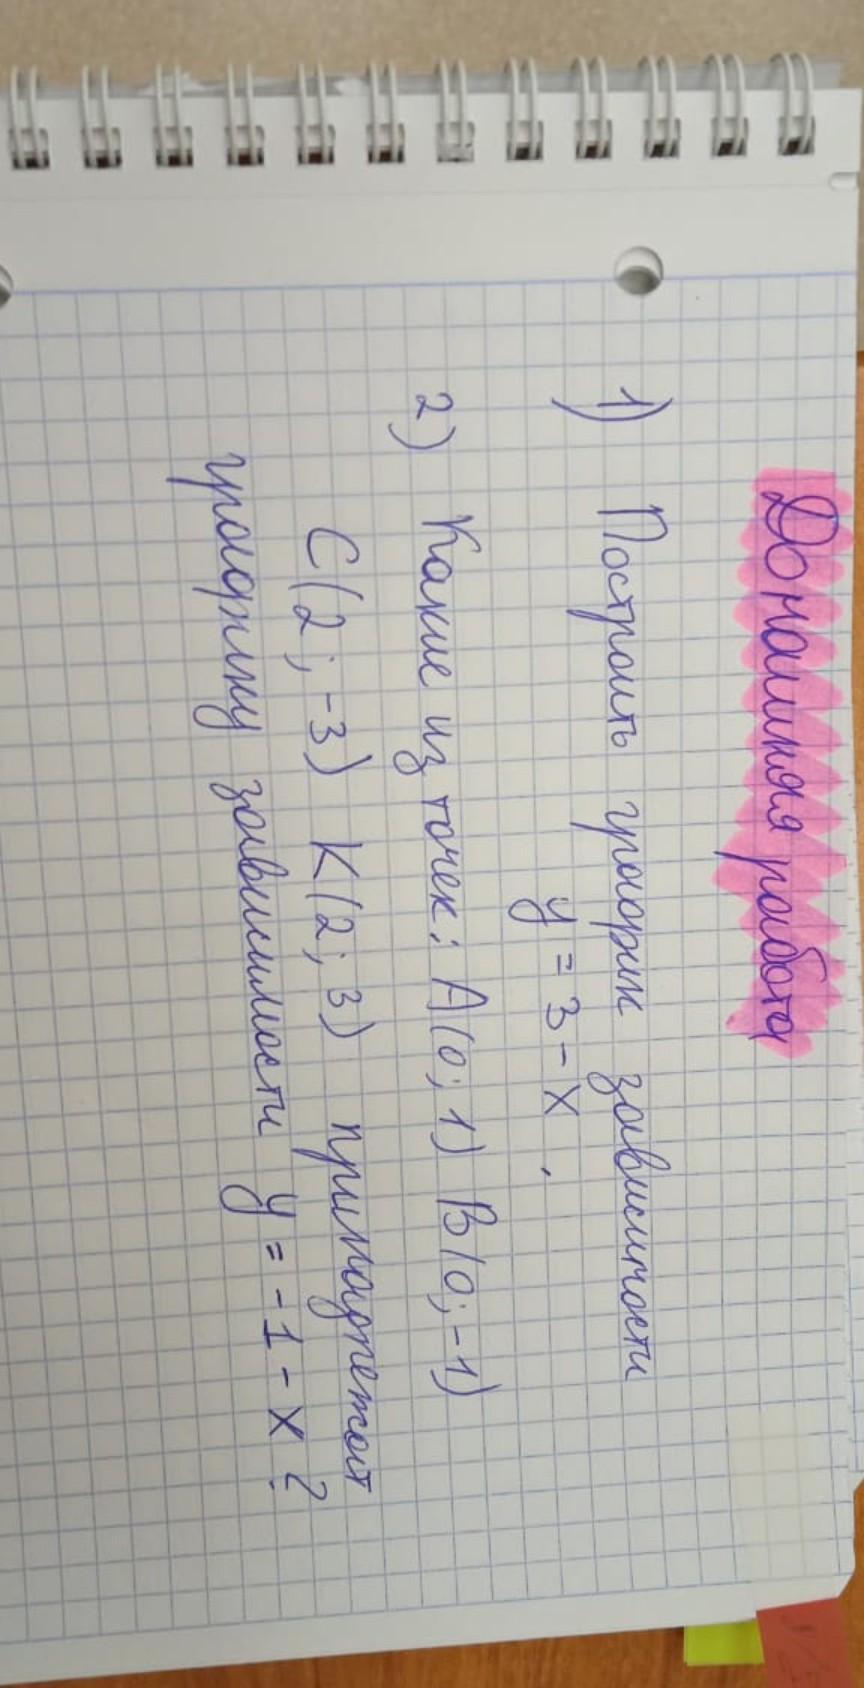 Домашняя работа
1) Построить график зависимости
y = 3 - x.
2) Какие из точек: A(0; 1) B(0; -1)
C(2; -3) K(2; 3) принадлежат
графику зависимости y = -1 - x ?